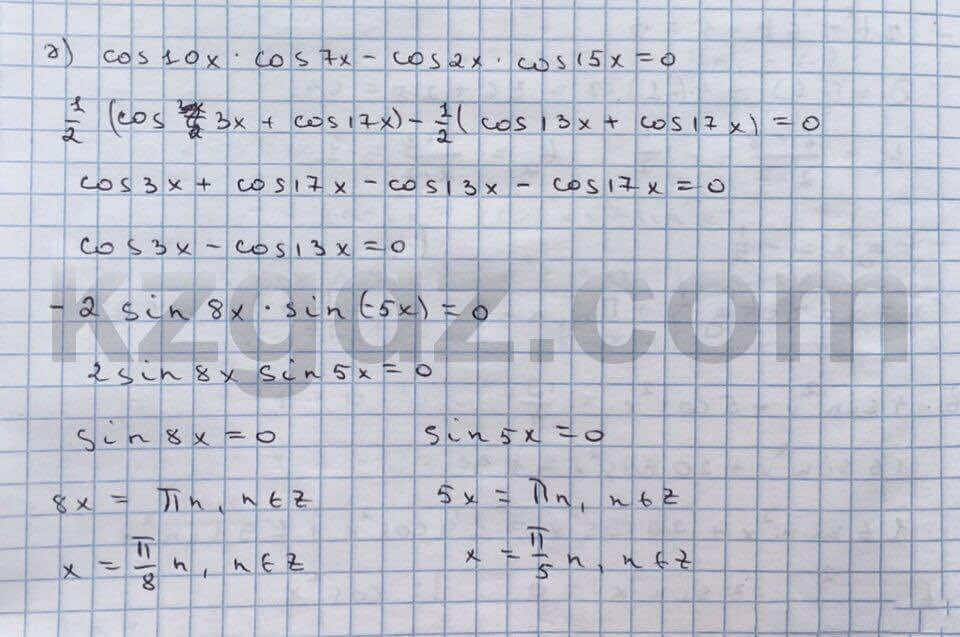 г) cos10x · cos7x − cos2x · cos15x = 0
1/2 (cos 3x + cos17x) − 1/2 (cos13x + cos17x) = 0
cos3x + cos17x − cos13x − cos17x = 0
cos3x − cos13x = 0
−2 sin 8x · sin (−5x) = 0
2 sin 8x sin 5x = 0
sin 8x = 0 sin 5x = 0
8x = πn, n ∈ Z 5x = πn, n ∈ Z
x = π/8 n, n ∈ Z x = π/5 n, n ∈ Z
kzgdz.com